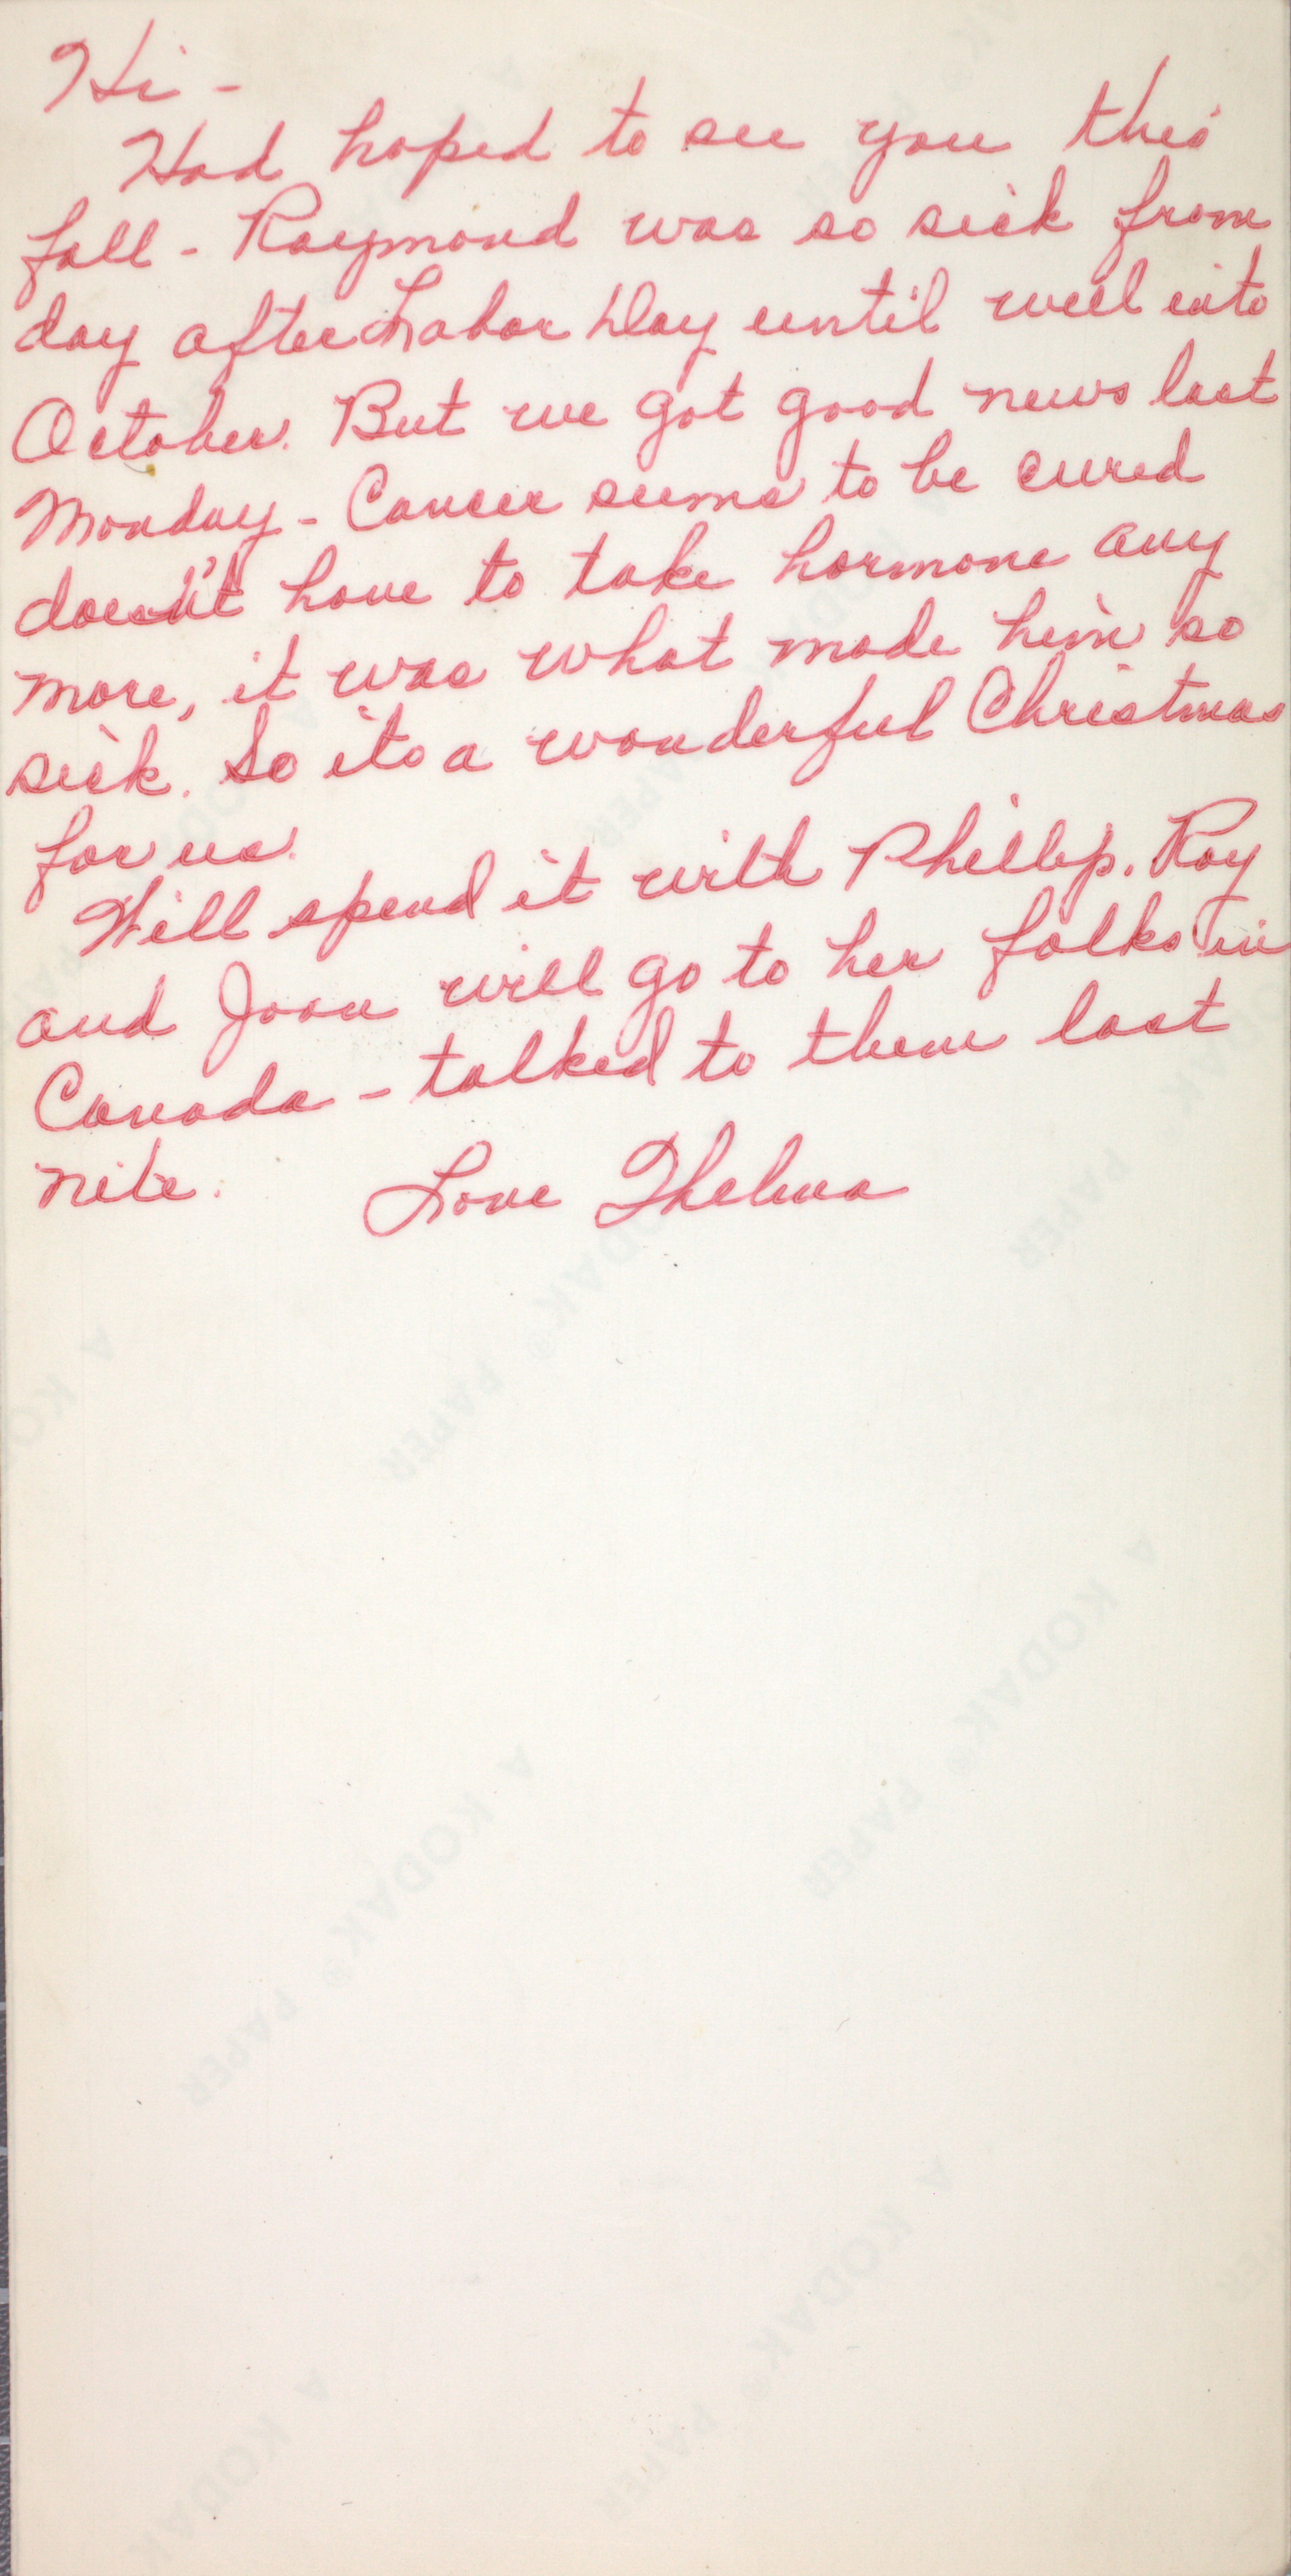 Hi -
Had hoped to see you this
fall - Raymond was so sick from
day after Labor Day until well into
October. But we got good news last
Monday - Cancer seems to be cured
doesn't have to take hormone any
more, it was what made him so
sick. So its a wonderful Christmas
for us.
Will spend it with Phillip. Roy
and Joan will go to her folks in
Canada - talked to them last
nite. Love Thelma
A KODAK® PAPER
A KODAK® PAPER
A KODAK® PAPER
A KODAK® PAPER
A KODAK